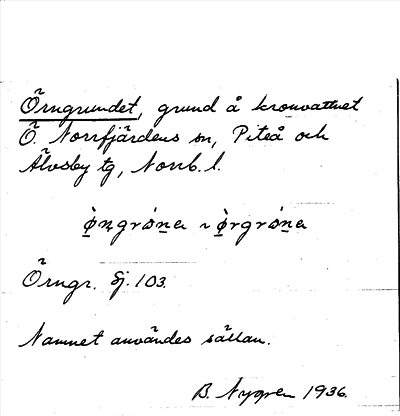 Örngrundet, grund å kronvattnet
Ö. Norrfjärdens sn, Piteå och
Älvsby tg, Norrb. l.
Örngr. Sj. 103.
Namnet användes sällan.
B. Nygren 1936.